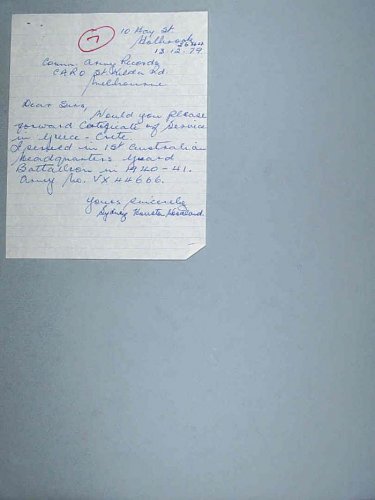 7
10 Hay St.
Holbrook
2644
13.12.79
Comm Army Records
CARO St Kilda Rd
Melbourne
Dear Sirs,
Would you please
forward Certificate of Service
in Greece - Crete
I served in 1st Australian
Headquarters Guard
Battalion in 1940-41.
Army No. VX 44666.
Yours Sincerely
Sydney